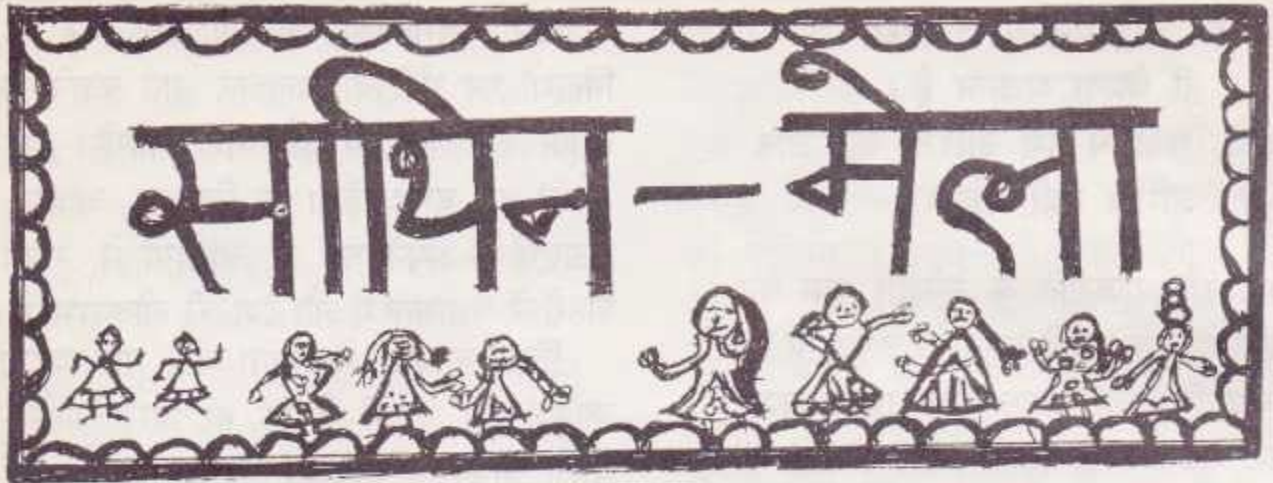 साथिन – मेला